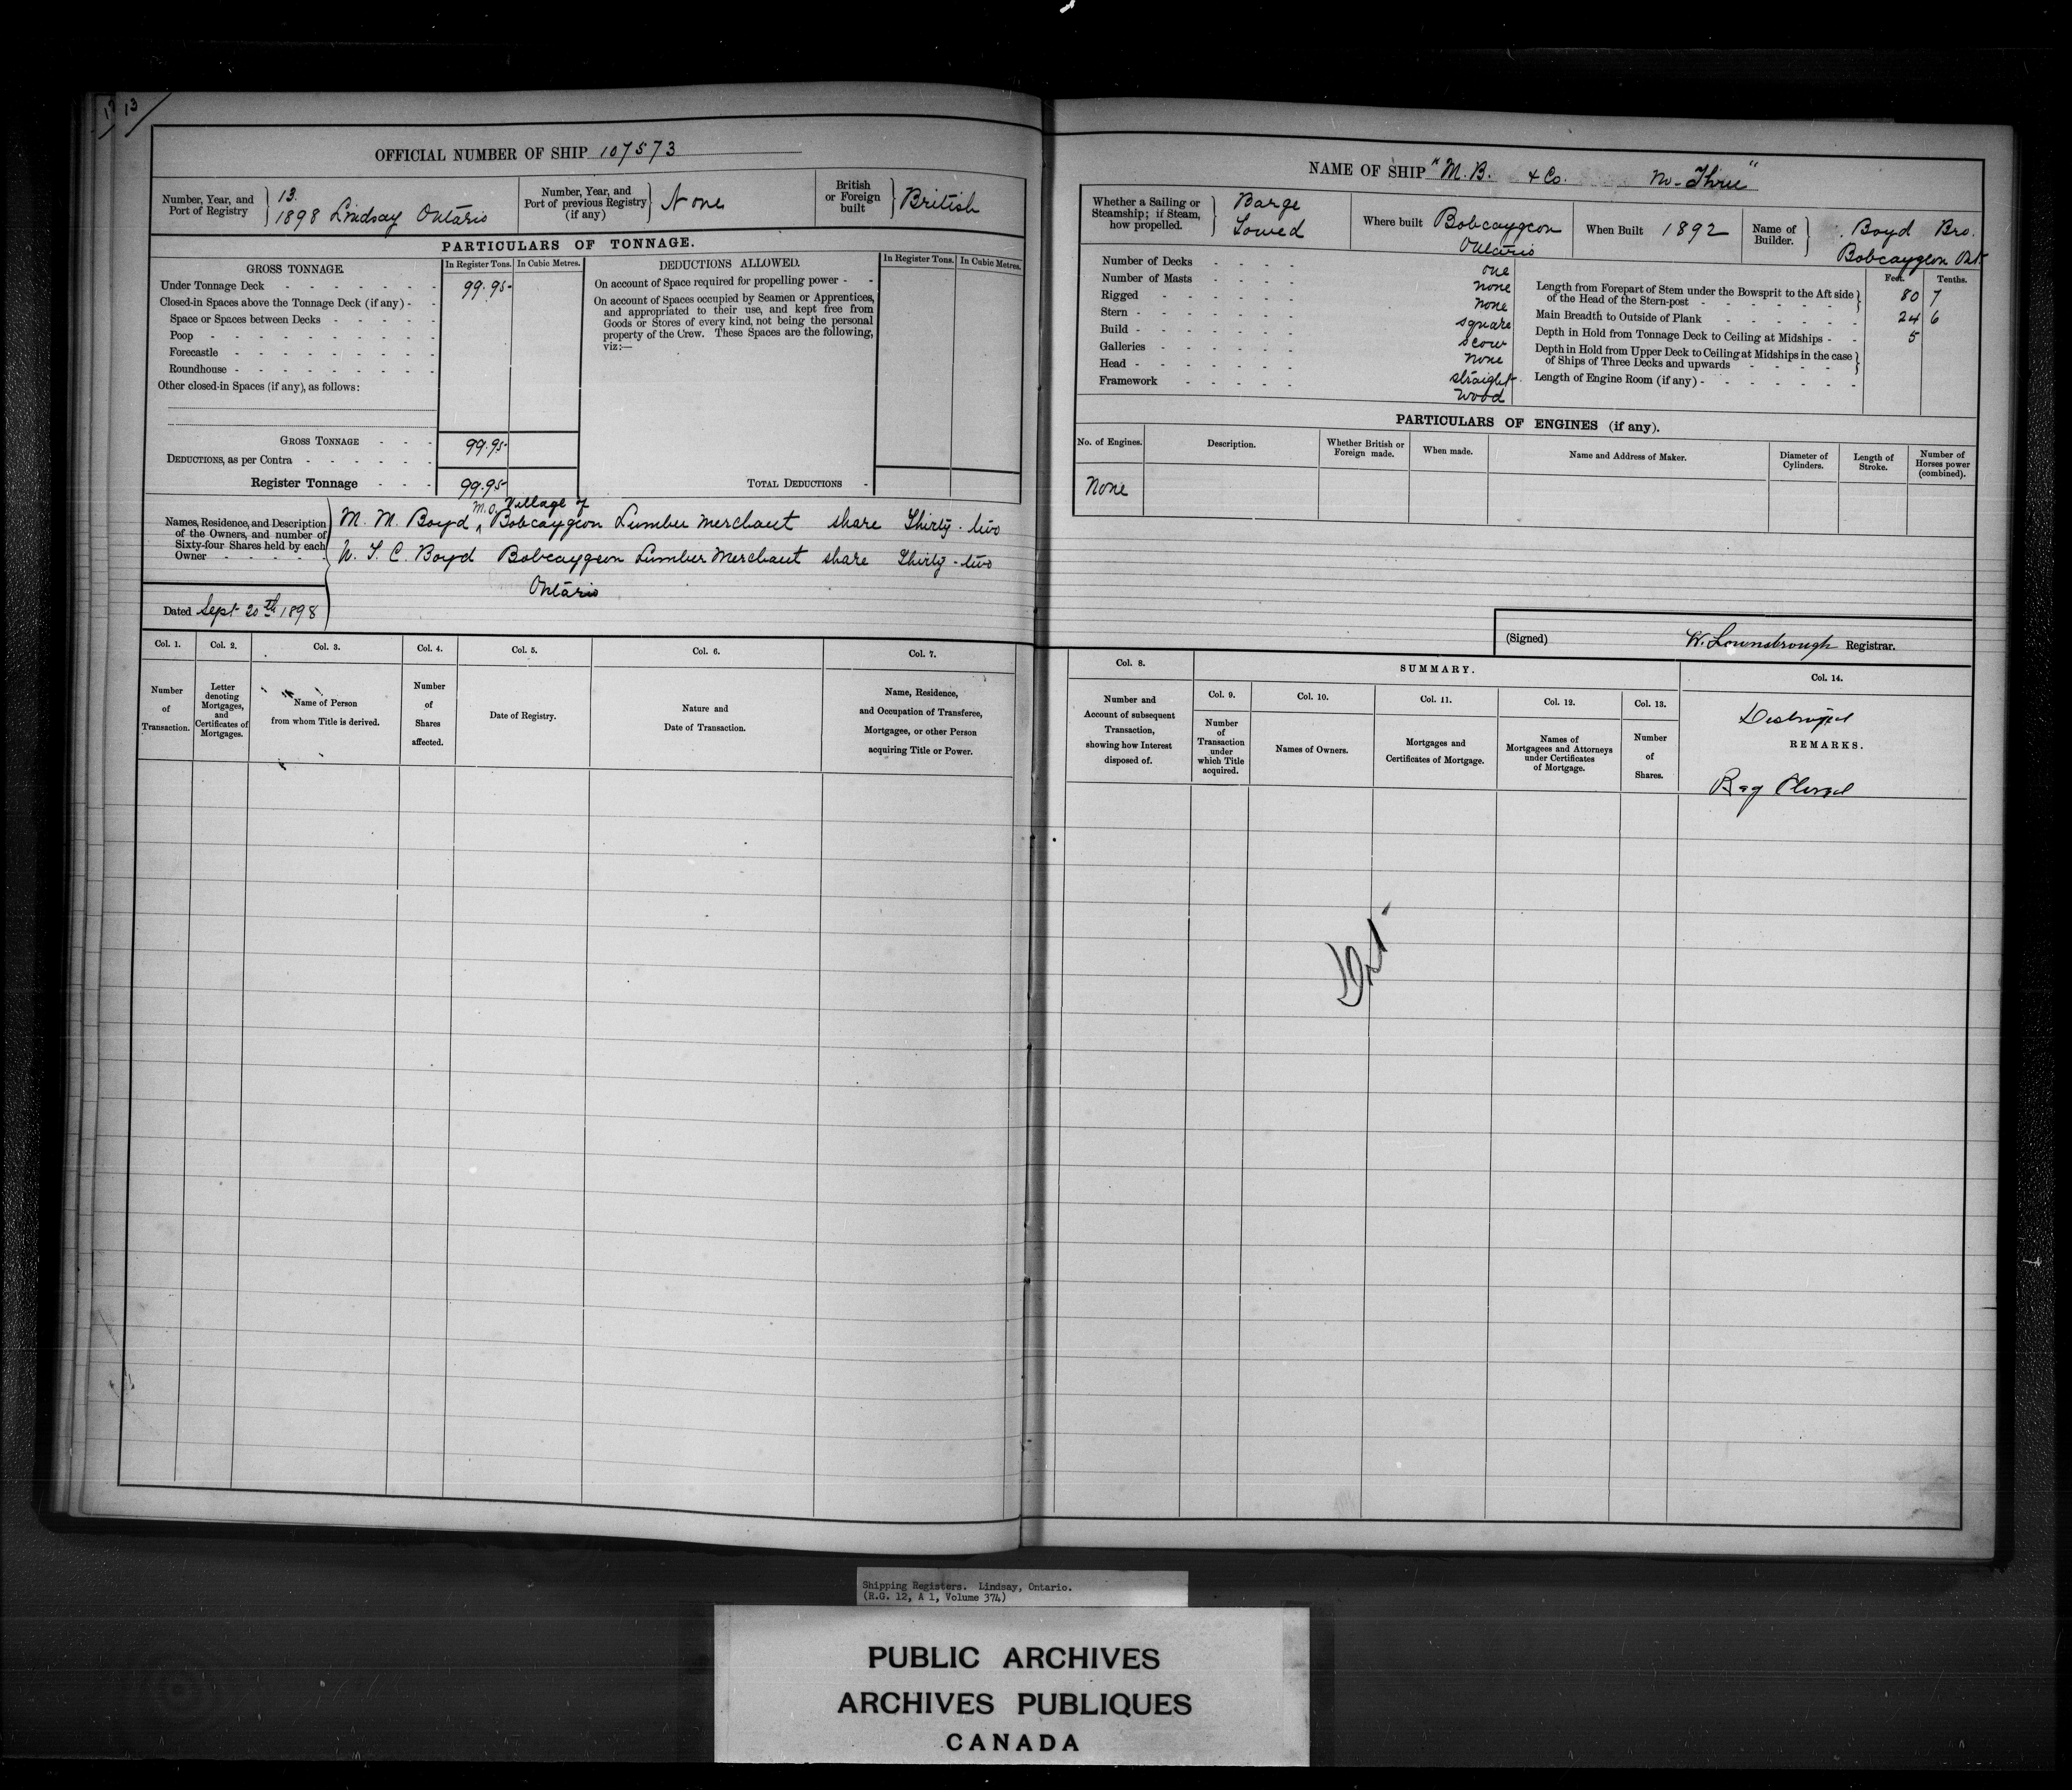 13
OFFICIAL NUMBER OF SHIP 107573
Number, Year, and Port of Registry } 13. 1898 Lindsay Ontario
Number, Year, and Port of previous Registry (if any) } None
British or Foreign built } British
PARTICULARS OF TONNAGE.
GROSS TONNAGE. In Register Tons. In Cubic Metres.
Under Tonnage Deck - - - - - - 99.95
Closed-in Spaces above the Tonnage Deck (if any) - -
Space or Spaces between Decks - - - -
Poop - - - - - - - - -
Forecastle - - - - - - - -
Roundhouse - - - - - - - -
Other closed-in Spaces (if any), as follows:
GROSS TONNAGE - - - 99.95
DEDUCTIONS, as per Contra - - - - - -
Register Tonnage - - - 99.95
DEDUCTIONS ALLOWED. In Register Tons. In Cubic Metres.
On account of Space required for propelling power - -
On account of Spaces occupied by Seamen or Apprentices,
and appropriated to their use, and kept free from
Goods or Stores of every kind, not being the personal
property of the Crew. These Spaces are the following,
viz:—
TOTAL DEDUCTIONS -
Names, Residence, and Description
of the Owners, and number of
Sixty-four Shares held by each
Owner - - - -
Village of
M. M. Boyd Bobcaygeon Lumber merchant share Thirty-two
W. T. C. Boyd Bobcaygeon Lumber Merchant share Thirty-two
Ontario
Dated Sept 20th 1898
Col. 1. Col. 2. Col. 3. Col. 4. Col. 5. Col. 6. Col. 7.
Number of Transaction.
Letter denoting Mortgages, and Certificates of Mortgages.
Name of Person from whom Title is derived.
Number of Shares affected.
Date of Registry.
Nature and Date of Transaction.
Name, Residence, and Occupation of Transferee, Mortgagee, or other Person acquiring Title or Power.
NAME OF SHIP "M. B. & Co. No- Three"
Whether a Sailing or Steamship; if Steam, how propelled. } Barge Towed
Where built Bobcaygeon Ontario
When Built 1892
Name of Builder. } Boyd Bro. Bobcaygeon Ont
Number of Decks - - - - one
Number of Masts - - - - none
Rigged - - - - - - none
Stern - - - - - - square
Build - - - - - - scow
Galleries - - - - - none
Head - - - - - - straight
Framework - - - - - wood
Feet. Tenths.
Length from Forepart of Stem under the Bowsprit to the Aft side of the Head of the Stern-post - - - - - - } 80 7
Main Breadth to Outside of Plank - - - - - - 24 6
Depth in Hold from Tonnage Deck to Ceiling at Midships - - 5
Depth in Hold from Upper Deck to Ceiling at Midships in the case of Ships of Three Decks and upwards - - - - }
Length of Engine Room (if any) - - - - - - -
PARTICULARS OF ENGINES (if any).
No. of Engines. Description. Whether British or Foreign made. When made. Name and Address of Maker. Diameter of Cylinders. Length of Stroke. Number of Horses power (combined).
None
(Signed) W. Lownsbrough Registrar.
Col. 8. SUMMARY. Col. 14.
Col. 9. Col. 10. Col. 11. Col. 12. Col. 13.
Number and Account of subsequent Transaction, showing how Interest disposed of.
Number of Transaction under which Title acquired.
Names of Owners.
Mortgages and Certificates of Mortgage.
Names of Mortgagees and Attorneys under Certificates of Mortgage.
Number of Shares.
Destroyed
REMARKS.
Reg Closed
Shipping Registers. Lindsay, Ontario.
(R.G. 12, A 1, Volume 374)
PUBLIC ARCHIVES
ARCHIVES PUBLIQUES
CANADA